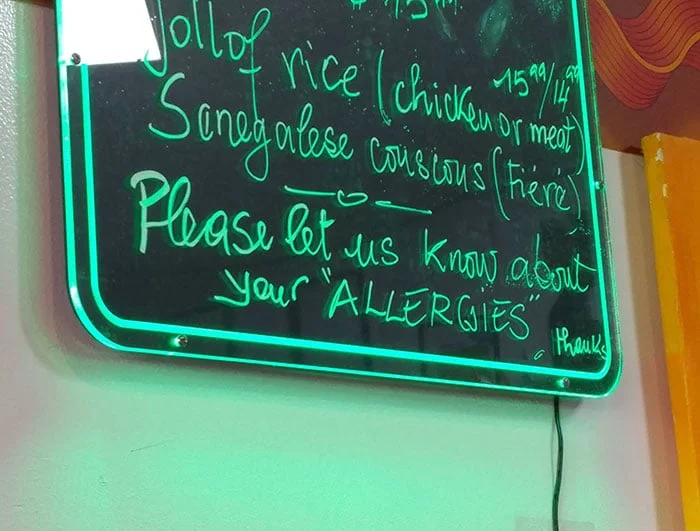 Jollof rice (chicken or meat)
15⁹⁹/14⁹⁹
Senegalese couscous (Tiéré)
Please let us know about
your "ALLERGIES"
thanks